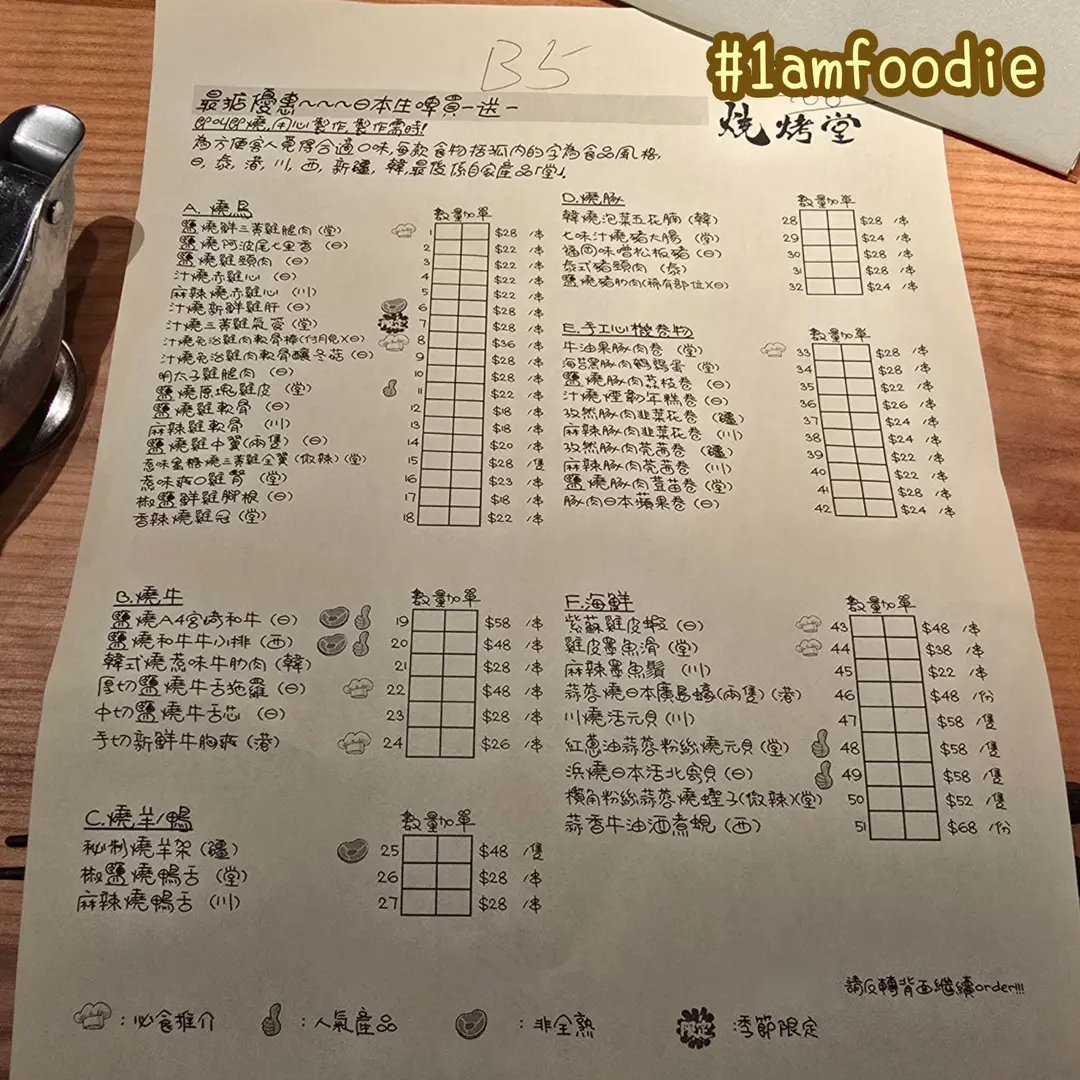 #1amfoodie
B5
燒烤堂
最抵優惠~~~日本生啤買一送一
即叫即燒,用心製作,製作需時!
為方便客人覓得合適口味,每款食物括弧內的字為食品風格,
日, 泰, 港, 川, 西, 新疆, 韓,最後係自家產品「堂」.
A. 燒鳥 數量加單
鹽燒鮮三黃雞腿肉 (堂) 1 $28 /串
鹽燒阿波尾七里香 (日) 2 $22 /串
鹽燒雞頸肉 (日) 3 $22 /串
汁燒赤雞心 (日) 4 $22 /串
麻辣燒赤雞心 (川) 5 $22 /串
汁燒新鮮雞肝 (日) 6 $28 /串
汁燒三黃雞氣管 (堂) 7 $28 /串
汁燒免治雞肉軟骨棒(付月見)(日) 8 $36 /串
汁燒免治雞肉軟骨釀冬菇 (日) 9 $28 /串
明太子雞腿肉 (日) 10 $28 /串
鹽燒原塊雞皮 (堂) 11 $22 /串
鹽燒雞軟骨 (日) 12 $18 /串
麻辣雞軟骨 (川) 13 $18 /串
鹽燒雞中翼(兩隻) (日) 14 $20 /串
惹味蜜糖燒三黃雞全翼(微辣) (堂) 15 $28 /隻
惹味爽口雞腎 (堂) 16 $23 /串
椒鹽鮮雞腳根 (日) 17 $18 /串
香辣燒雞冠 (堂) 18 $22 /串
B.燒牛 數量加單
鹽燒A4宮崎和牛 (日) 19 $58 /串
鹽燒和牛牛小排 (西) 20 $48 /串
韓式燒惹味牛肋肉 (韓) 21 $28 /串
厚切鹽燒牛舌拖羅 (日) 22 $48 /串
中切鹽燒牛舌芯 (日) 23 $28 /串
手切新鮮牛胸爽 (港) 24 $26 /串
C.燒羊/鴨 數量加單
秘制燒羊架 (疆) 25 $48 /隻
椒鹽燒鴨舌 (堂) 26 $28 /串
麻辣燒鴨舌 (川) 27 $28 /串
D.燒豚 數量加單
韓燒泡菜五花腩 (韓) 28 $28 /串
七味汁燒豬大腸 (堂) 29 $24 /串
福岡味噌松板豬 (日) 30 $28 /串
泰式豬頸肉 (泰) 31 $28 /串
鹽燒豬肋肉(稀有部位)(日) 32 $24 /串
E.手工心機卷物 數量加單
牛油果豚肉卷 (堂) 33 $28 /串
海苔黑豚肉鵪鶉蛋 (堂) 34 $28 /串
鹽燒豚肉荔枝卷 (日) 35 $22 /串
汁燒煙韌年糕卷 (日) 36 $26 /串
孜然豚肉韭菜花卷 (疆) 37 $24 /串
麻辣豚肉韭菜花卷 (川) 38 $24 /串
孜然豚肉芫茜卷 (疆) 39 $22 /串
麻辣豚肉芫茜卷 (川) 40 $22 /串
鹽燒豚肉萵苣卷 (堂) 41 $28 /串
豚肉日本蘋果卷 (日) 42 $24 /串
F.海鮮 數量加單
紫蘇雞皮蝦 (日) 43 $48 /串
雞皮墨魚滑 (堂) 44 $38 /串
麻辣墨魚鬚 (川) 45 $22 /串
蒜蓉燒日本廣島蠔(兩隻) (港) 46 $48 /份
川燒活元貝 (川) 47 $58 /隻
紅蔥油蒜蓉粉絲燒元貝 (堂) 48 $58 /隻
浜燒日本活北寄貝 (日) 49 $58 /隻
檳角粉絲蒜蓉燒蟶子(微辣)(堂) 50 $52 /隻
蒜香牛油酒煮蜆 (西) 51 $68 /份
請反轉背面繼續order!!!
:必食推介 :人氣產品 :非全熟 :季節限定